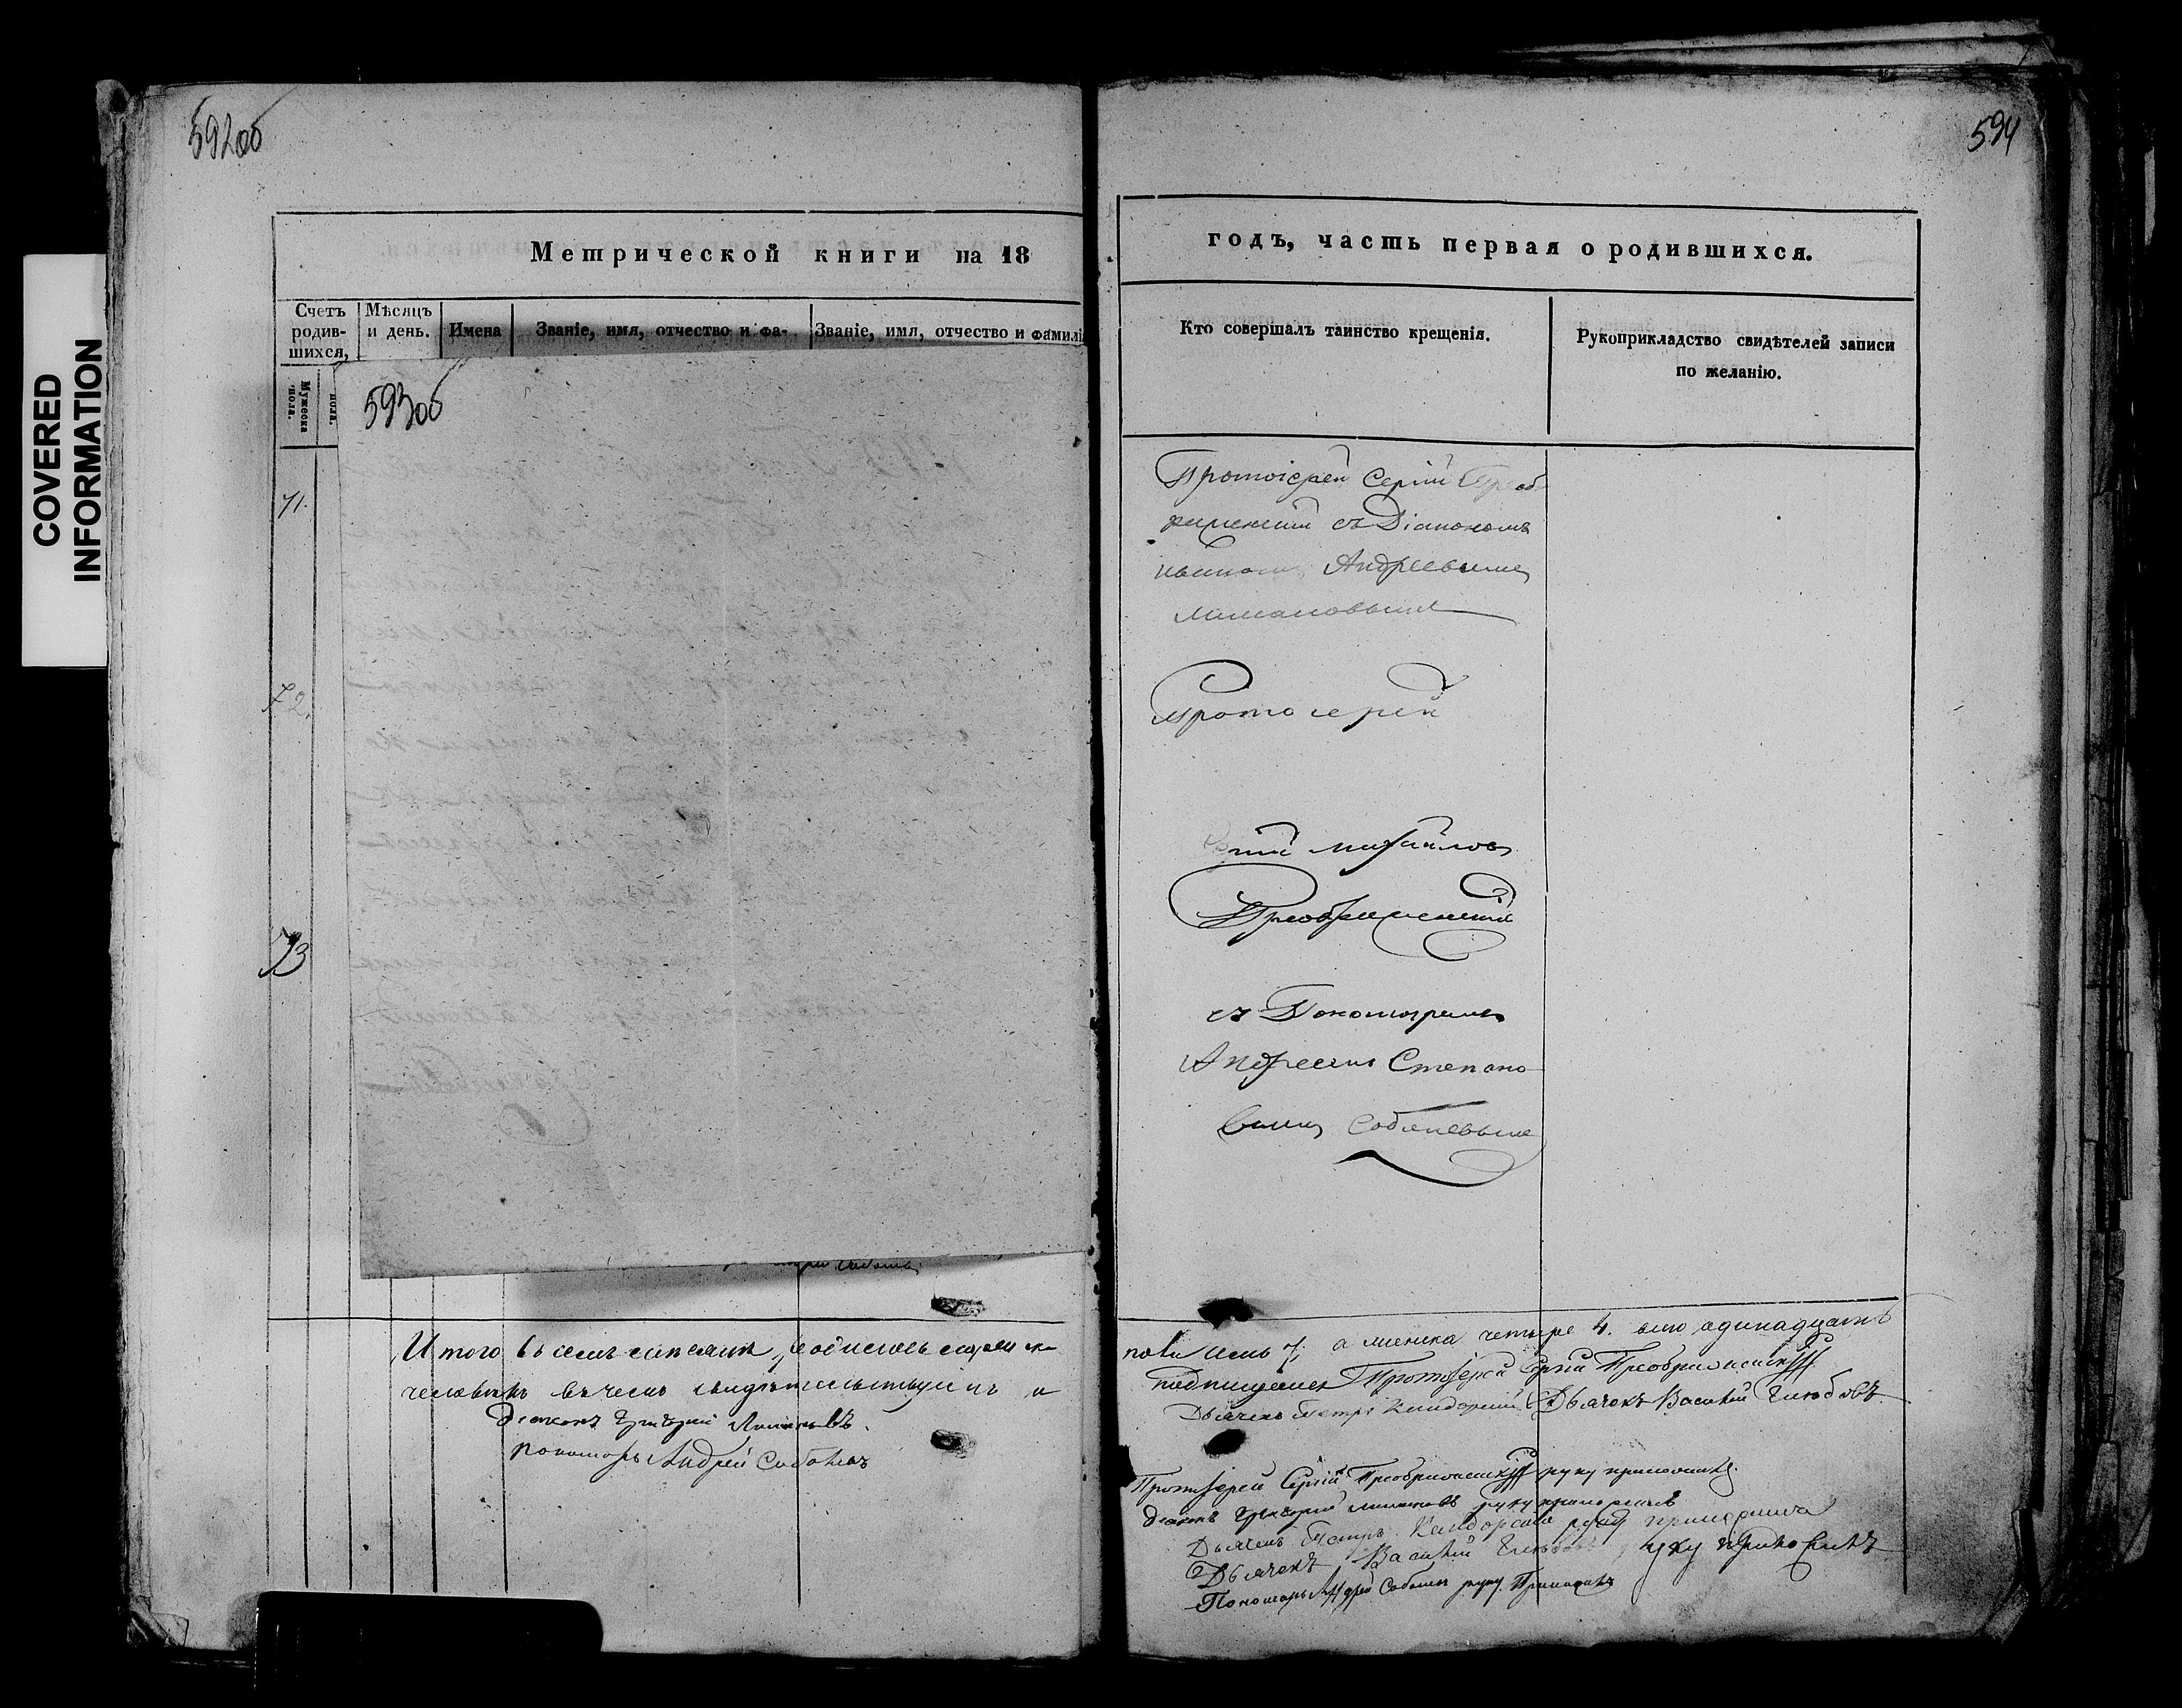 COVERED
INFORMATION
592об
Метрической книги на 18
Счетъ родив-шихся,
Мѣсяцъ и день.
Имена
Званіе, имя, отчество и фа-
Званіе, имя, отчество и фамилі
Мужеска пола.
пола.
593об
71.
72.
73
Итого въ родилось
человѣкъ въ чемъ и
Діаконъ Григорій
пономарь Андрей Соболевъ
594
годъ, часть первая о родившихся.
Кто совершалъ таинство крещенія.
Рукоприкладство свидѣтелей записи
по желанію.
Протоіерей Сергій Преоб
раженскій съ Діакономъ
Андреевымъ
Лимановымъ
Протоіерей
Сергій Михайловъ
Преображенскій
съ Пономаремъ
Андреемъ Степано
вымъ Соболевымъ
пола семь 7, а женска четыре 4. всего одинадцать
подписуемся Протоіерей Сергій Преображенскій
Дьячекъ Петръ Дьячекъ Василій Глѣбовъ
Протоіерей Сергій Преображенскій руку приложилъ
Діаконъ Григорій Лимановъ руку приложилъ
Дьячекъ Петръ руку приложилъ
Дьячекъ Василій Глѣбовъ руку приложилъ
Пономарь Андрей Соболевъ руку приложилъ